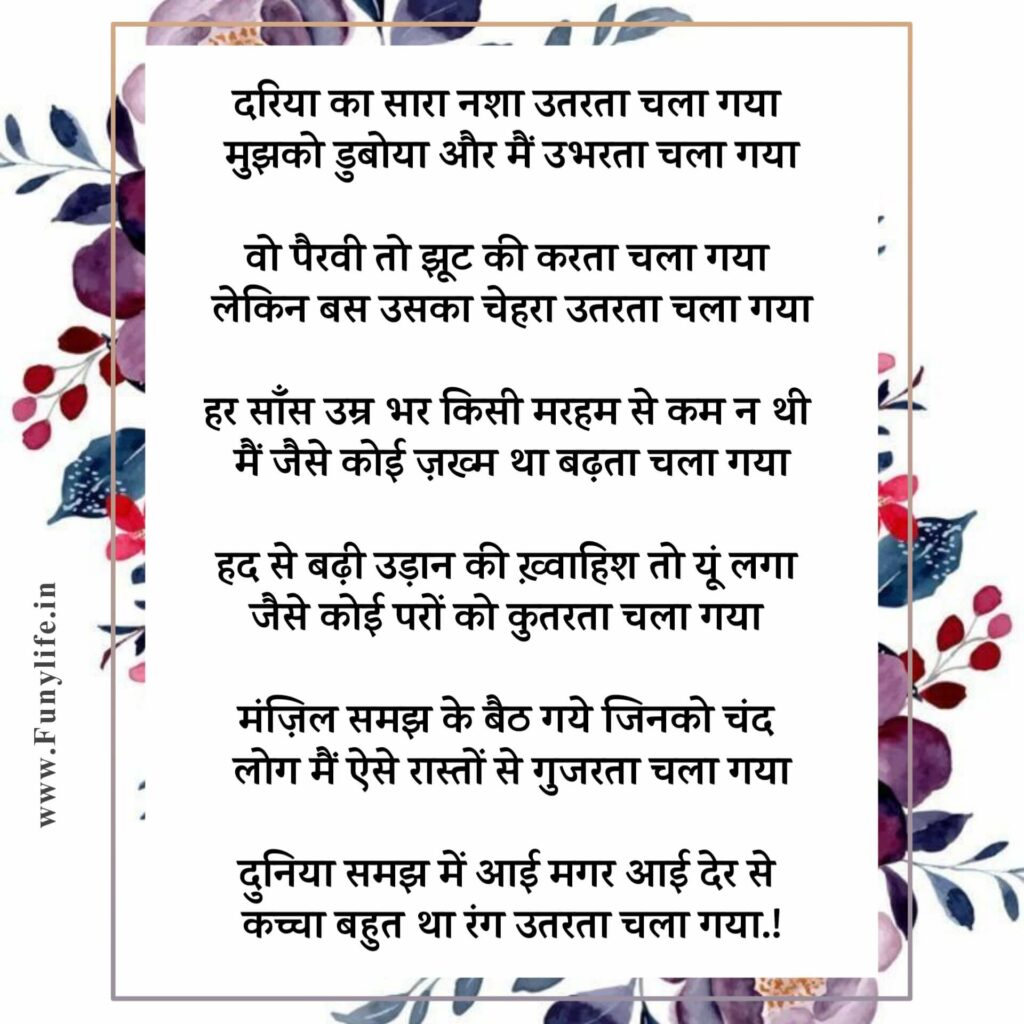 दरिया का सारा नशा उतरता चला गया
मुझको डुबोया और मैं उभरता चला गया
वो पैरवी तो झूट की करता चला गया
लेकिन बस उसका चेहरा उतरता चला गया
हर साँस उम्र भर किसी मरहम से कम न थी
मैं जैसे कोई ज़ख्म था बढ़ता चला गया
हद से बढ़ी उड़ान की ख़्वाहिश तो यूं लगा
जैसे कोई परों को कुतरता चला गया
मंज़िल समझ के बैठ गये जिनको चंद
लोग मैं ऐसे रास्तों से गुजरता चला गया
दुनिया समझ में आई मगर आई देर से
कच्चा बहुत था रंग उतरता चला गया.!
www.Funylife.in